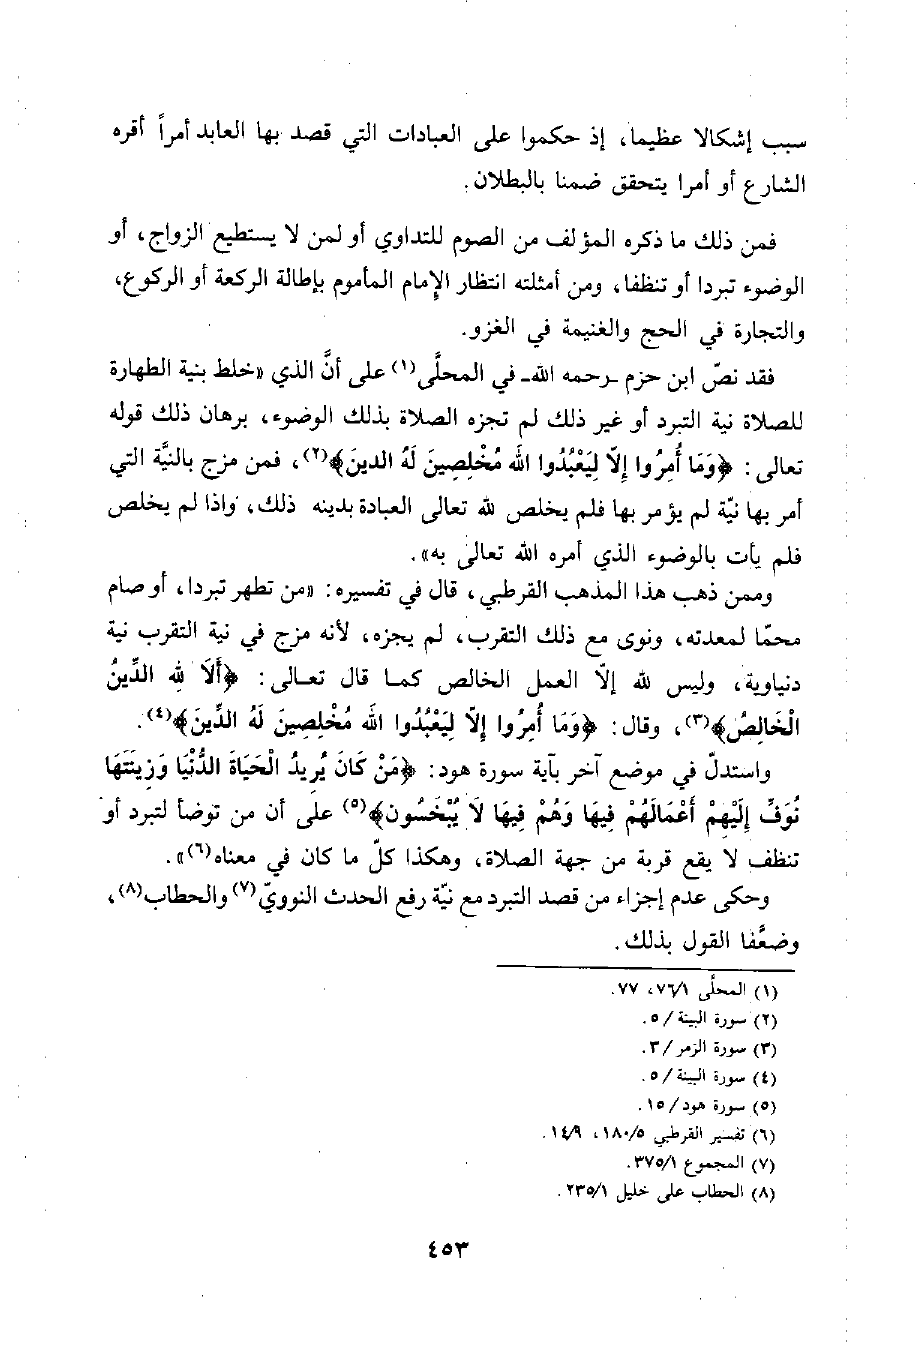 سبب إشكالا عظيما، إذ حكموا على العبادات التي قصد بها العابد أمراً أقره
الشارع أو أمرا يتحقق ضمنا بالبطلان.
فمن ذلك ما ذكره المؤلف من الصوم للتداوي أو لمن لا يستطيع الزواج، أو
الوضوء تبردا أو تنظفا، ومن أمثلته انتظار الإمام المأموم بإطالة الركعة أو الركوع،
والتجارة في الحج والغنيمة في الغزو.
فقد نصّ ابن حزم -رحمه الله- في المحلَّى(١) على أنَّ الذي «خلط بنية الطهارة
للصلاة نية التبرد أو غير ذلك لم تجزه الصلاة بذلك الوضوء، برهان ذلك قوله
تعالى: ﴿وَمَا أُمِرُوا إلاّ لِيَعْبُدُوا الله مُخْلِصِينَ لَهُ الدينَ﴾(٢)، فمن مزج بالنيَّة التي
أمر بها نيّة لم يؤمر بها فلم يخلص لله تعالى العبادة بدينه ذلك، واذا لم يخلص
فلم يأت بالوضوء الذي أمره الله تعالى به».
وممن ذهب هذا المذهب القرطبي، قال في تفسيره: «من تطهر تبردا، أو صام
محمّا لمعدته، ونوى مع ذلك التقرب، لم يجزه، لأنه مزج في نية التقرب نية
دنياوية، وليس لله إلاّ العمل الخالص كما قال تعالى: ﴿أَلَا لِلهِ الدِّينُ
الْخَالِصُ﴾(٣)، وقال: ﴿وَمَا أُمِرُوا إلاّ لِيَعْبُدُوا الله مُخْلِصِينَ لَهُ الدِّينَ﴾(٤).
واستدلّ في موضع آخر بآية سورة هود: ﴿مَنْ كَانَ يُرِيدُ الْحَيَاةَ الدُّنْيَا وَزِينَتَهَا
نُوَفِّ إِلَيْهِمْ أَعْمَالَهُمْ فِيهَا وَهُمْ فِيهَا لَا يُبْخَسُون﴾(٥) على أن من توضأ لتبرد أو
تنظف لا يقع قربة من جهة الصلاة، وهكذا كلّ ما كان في معناه(٦)».
وحكى عدم إجزاء من قصد التبرد مع نيّة رفع الحدث النوويّ(٧) والحطاب(٨)،
وضعَّفا القول بذلك.
(١) المحلَّى ٧٦/١، ٧٧.
(٢) سورة البينة / ٥.
(٣) سورة الزمر / ٣.
(٤) سورة البينة / ٥.
(٥) سورة هود / ١٥.
(٦) تفسير القرطبي ١٨٠/٥، ١٤/٩.
(٧) المجموع ٣٧٥/١.
(٨) الحطاب على خليل ٢٣٥/١.
٤٥٣